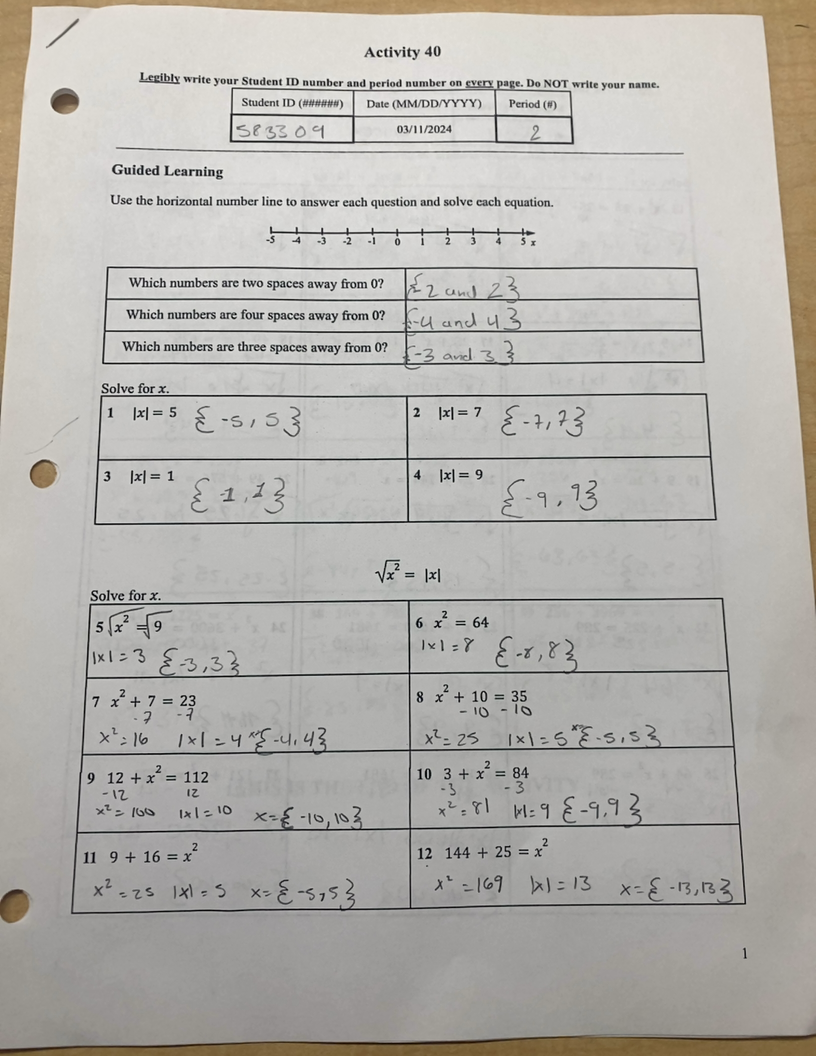 Activity 40
Legibly write your Student ID number and period number on every page. Do NOT write your name.
Student ID (######) Date (MM/DD/YYYY) Period (#)
583309 03/11/2024 2
Guided Learning
Use the horizontal number line to answer each question and solve each equation.
-5 -4 -3 -2 -1 0 1 2 3 4 5 x
Which numbers are two spaces away from 0? {-2 and 2}
Which numbers are four spaces away from 0? {-4 and 4}
Which numbers are three spaces away from 0? {-3 and 3}
Solve for x.
1 |x| = 5 {-5, 5}
2 |x| = 7 {-7, 7}
3 |x| = 1 {-1, 1}
4 |x| = 9 {-9, 9}
√x² = |x|
Solve for x.
5 √x² = √9
|x| = 3 {-3, 3}
6 x² = 64
|x| = 8 {-8, 8}
7 x² + 7 = 23
-7 -7
x² = 16 |x| = 4 x={-4, 4}
8 x² + 10 = 35
-10 -10
x² = 25 |x| = 5 x={-5, 5}
9 12 + x² = 112
-12 12
x² = 100 |x| = 10 x={-10, 10}
10 3 + x² = 84
-3 -3
x² = 81 |x| = 9 {-9, 9}
11 9 + 16 = x²
x² = 25 |x| = 5 x={-5, 5}
12 144 + 25 = x²
x² = 169 |x| = 13 x={-13, 13}
1